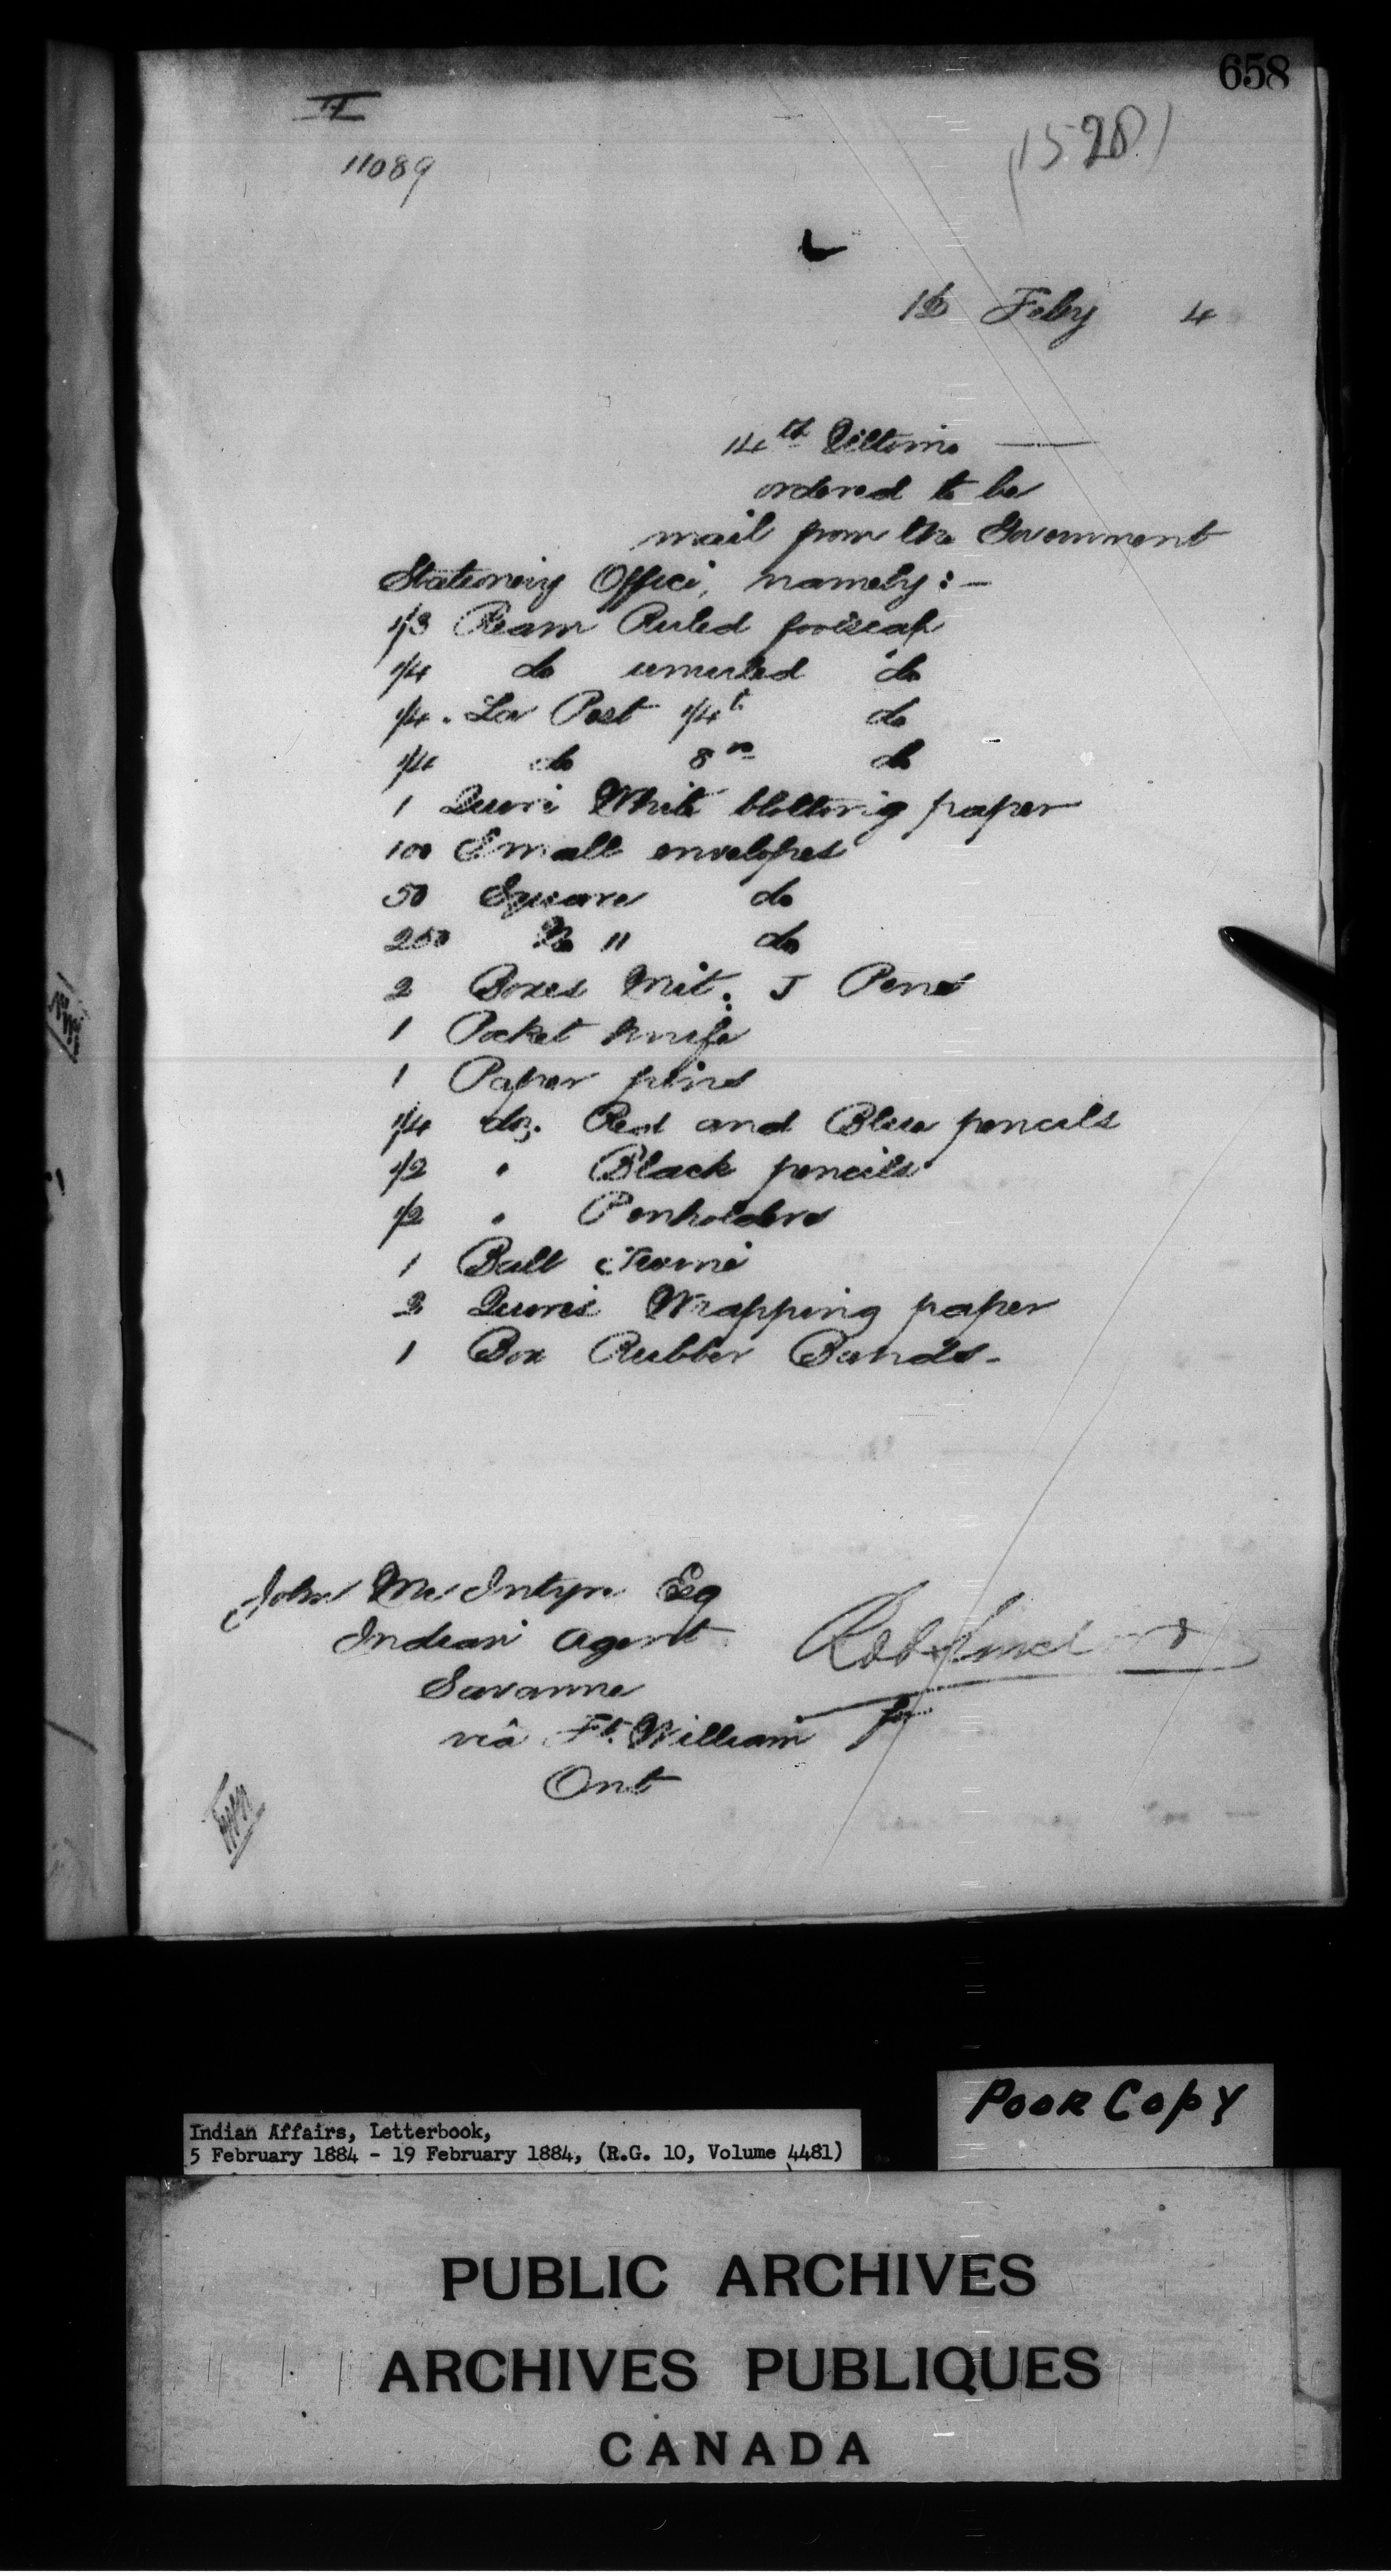 658
11089
(1528)
Feby 4
14th Ultimo —
ordered to be
mail from the Government
Stationery Office, namely:—
1/3 Ream Ruled foolscap
1/4 do unruled do
1/4 " La Post 1/4t do
1/4 do 8vo do
1 Quire White blotting paper
100 Small envelopes
50 Square do
250 No 11 do
2 Boxes Mit. J Pens
1 Pocket knife
1 Paper pins
1/4 doz. Red and Blue pencils
1/2 " Black pencils
1/2 " Penholders
1 Ball Twine
2 Quires Wrapping paper
1 Box Rubber Bands-
John McIntyre Esq
Indian Agent
Savanne
viâ Ft. William
Ont
for
Poor Copy
Indian Affairs, Letterbook,
5 February 1884 - 19 February 1884, (R.G. 10, Volume 4481)
PUBLIC ARCHIVES
ARCHIVES PUBLIQUES
CANADA